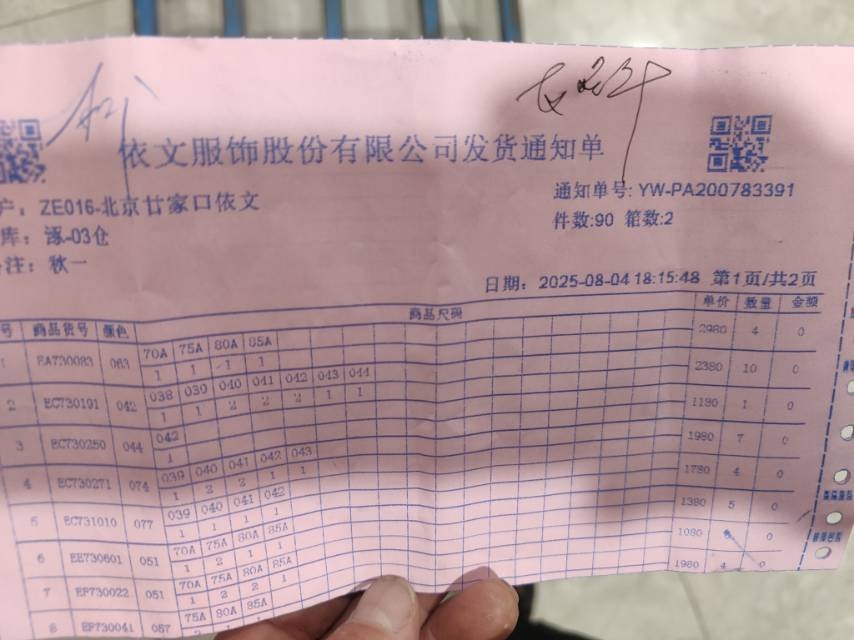 依文服饰股份有限公司发货通知单
通知单号: YW-PA200783391
户: ZE016-北京甘家口依文
件数:90 箱数:2
库: 涿-03仓
注: 秋一
日期: 2025-08-04 18:15:48 第1页/共2页
号 商品货号 颜色 商品尺码 单价 数量 金额
1 EA730083 063 70A 75A 80A 85A 2980 4 0
1 1 1 1
2 EC730191 042 038 039 040 041 042 043 044 2380 10 0
1 1 2 2 2 1 1
3 EC730250 044 042 1180 1 0
1
4 EC730271 074 039 040 041 042 043 1980 7 0
1 2 2 1 1
5 EC731010 077 039 040 041 042 1780 4 0
1 1 1 1
6 EE730601 051 70A 75A 80A 85A 1380 5 0
1 2 1 1
7 EF730022 051 70A 75A 80A 85A 1080 0
1 2 2 1
8 EF730041 057 75A 80A 85A 1980 4 0